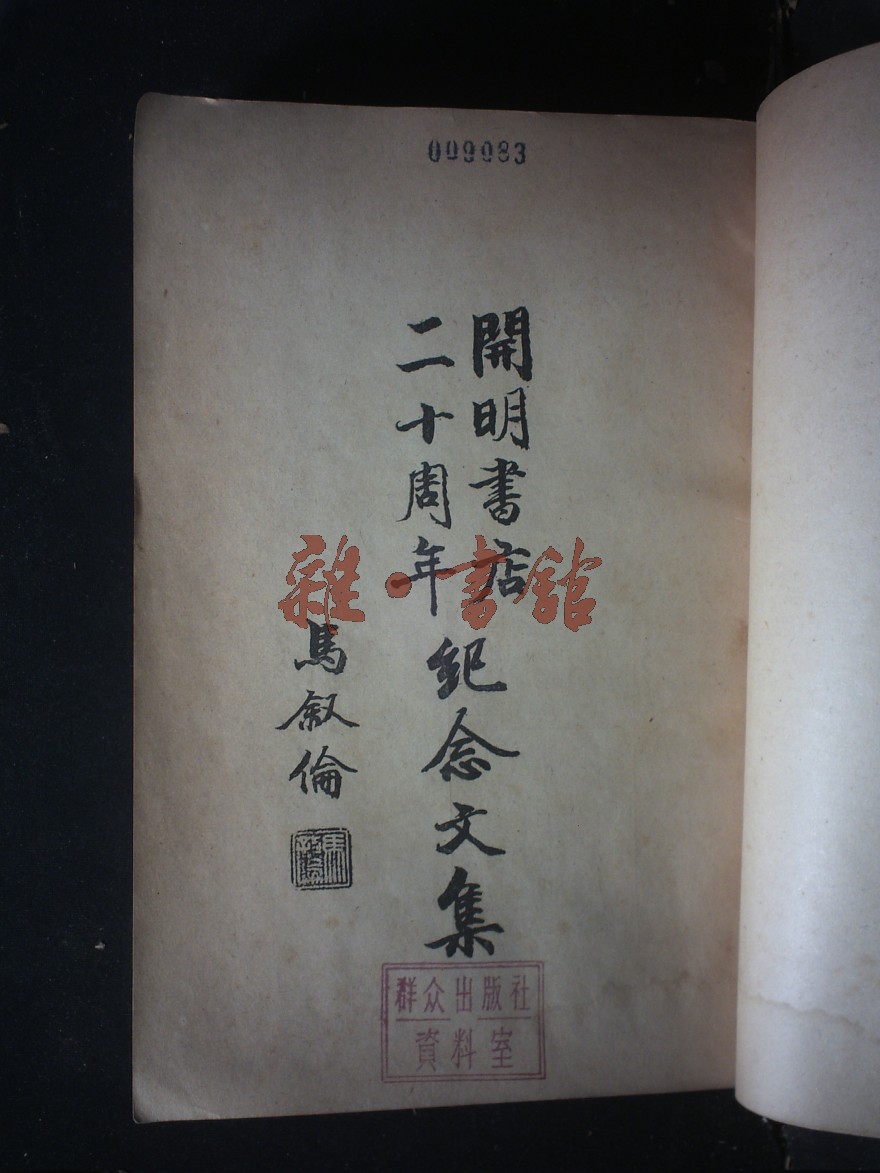 009083
開明書店
二十周年
紀念文集
馬叙倫
雜·書館
群众出版社
資料室